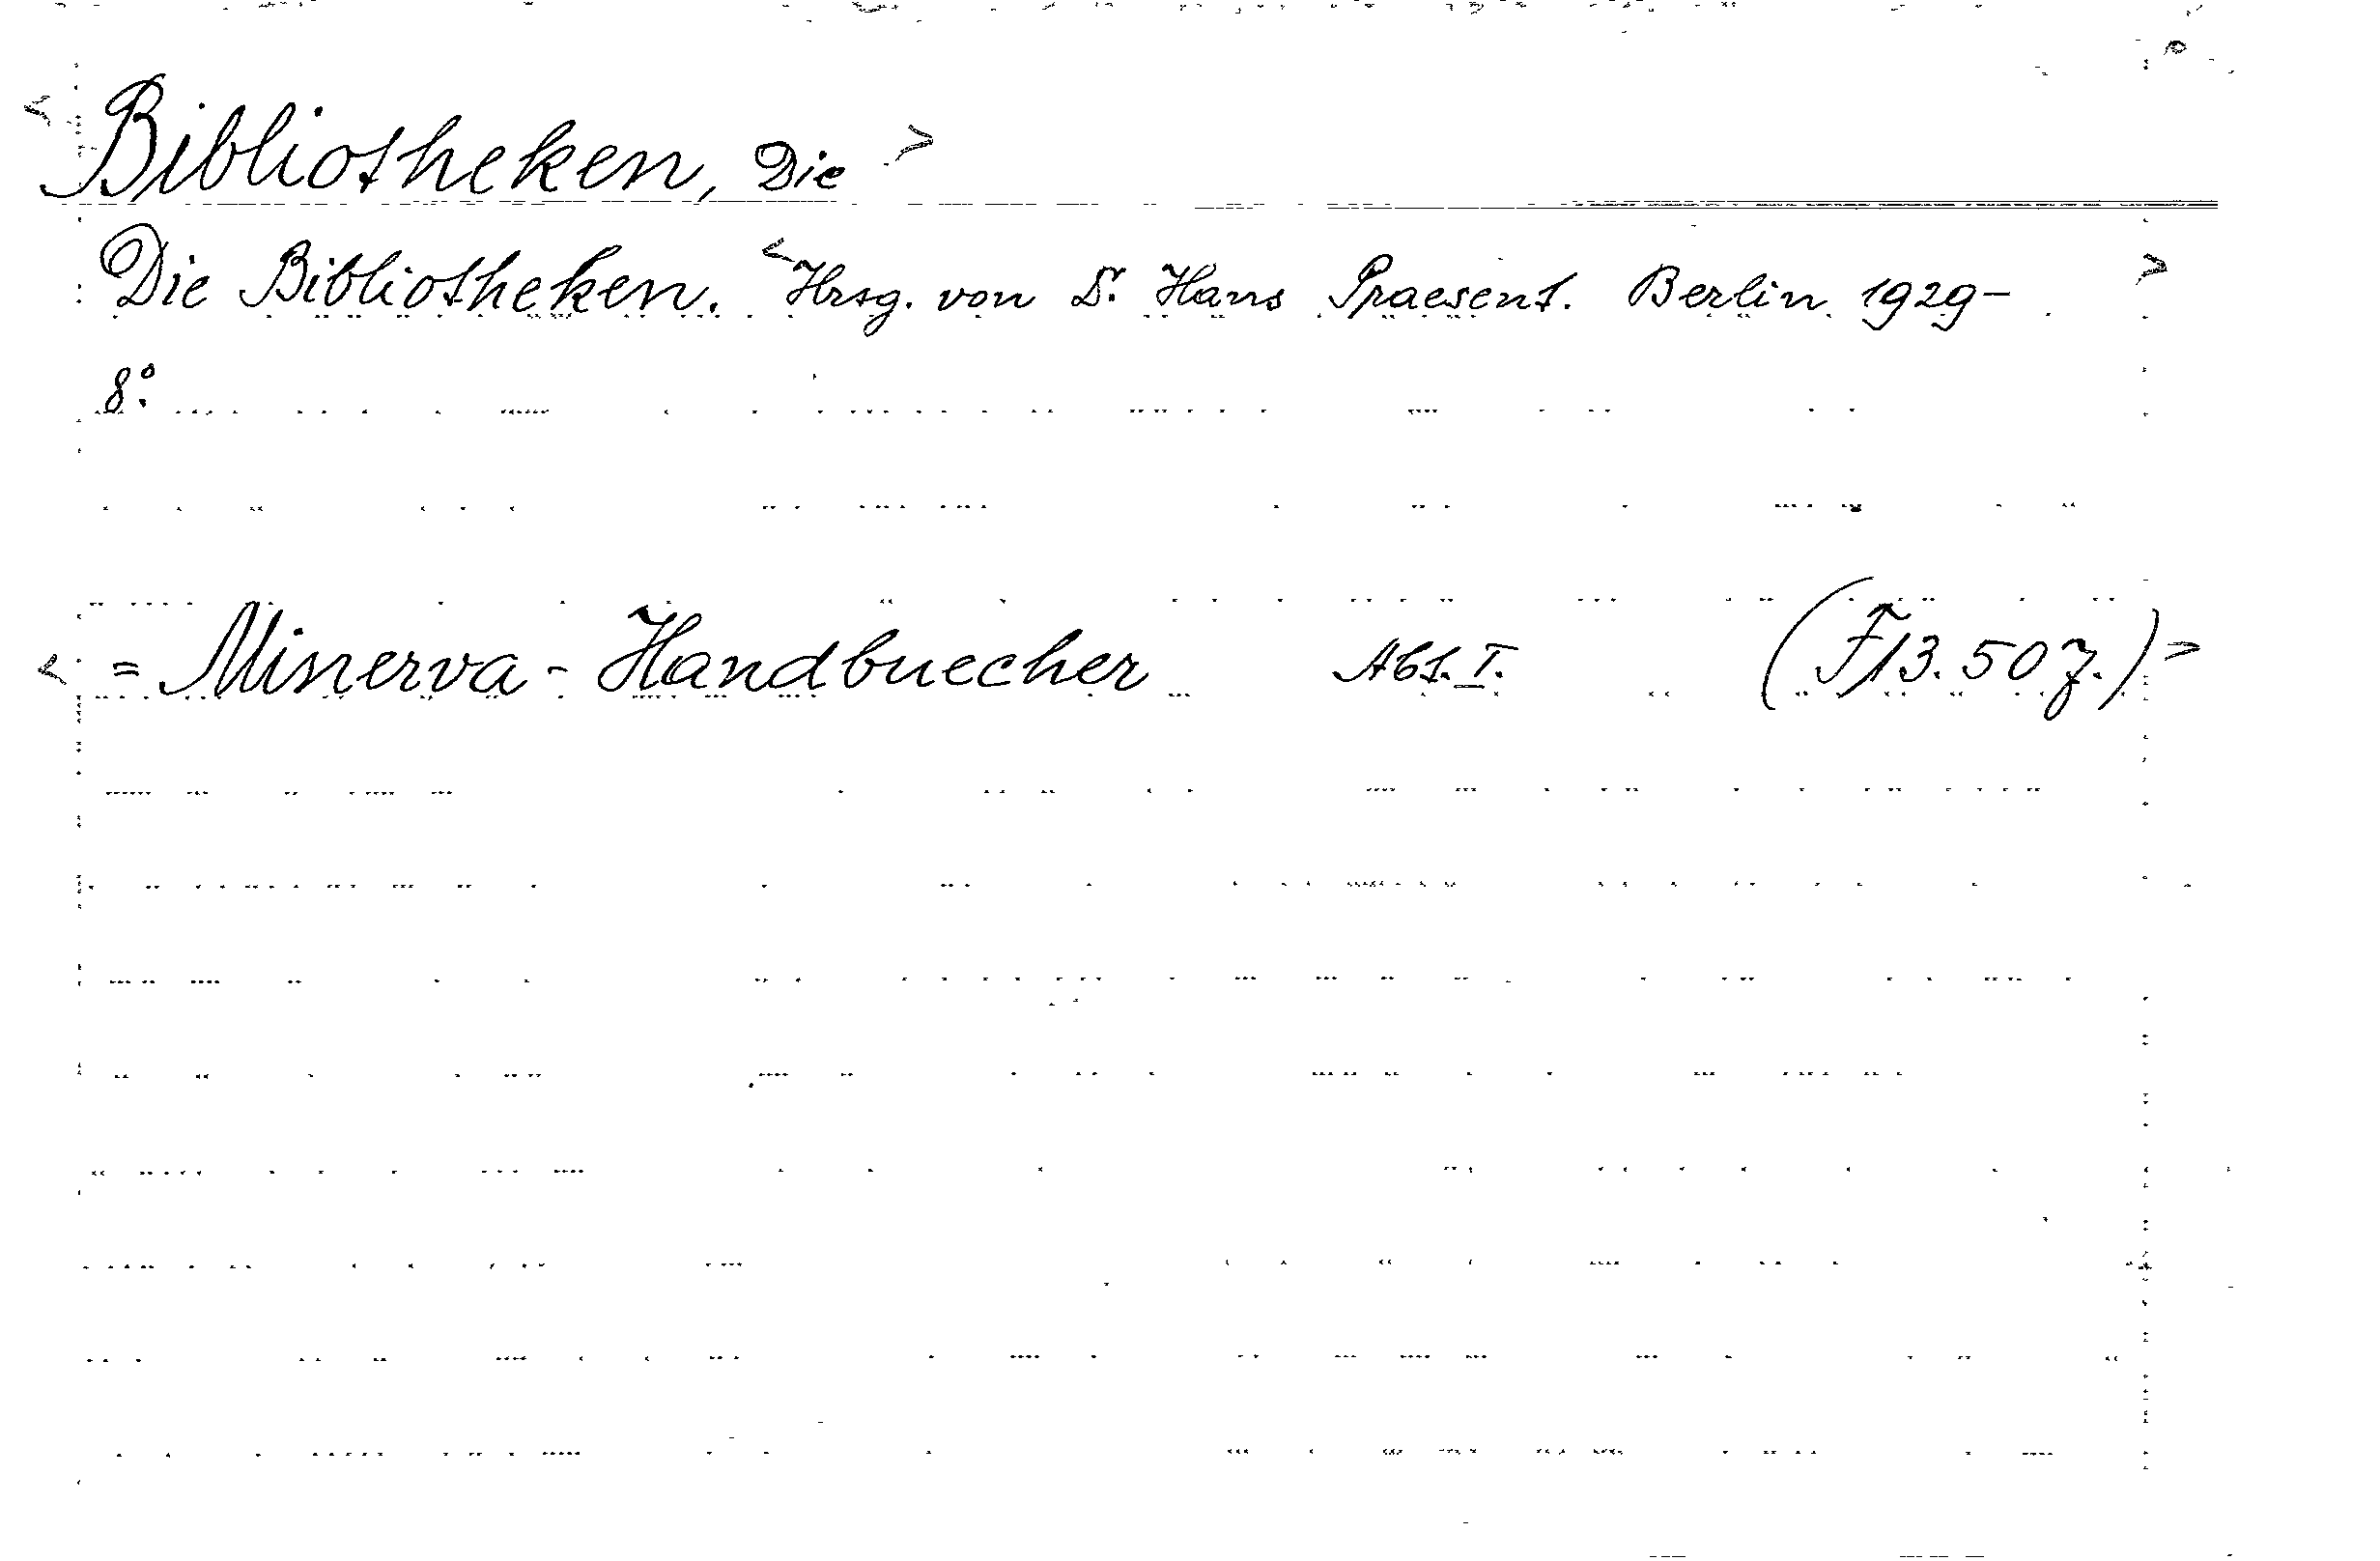 < Bibliotheken, Die >
Die Bibliotheken. < Hrsg. von Dr. Hans Praesent. Berlin 1929- >
8°.
< = Minerva-Handbuecher Abt. I. (F13.507.) >